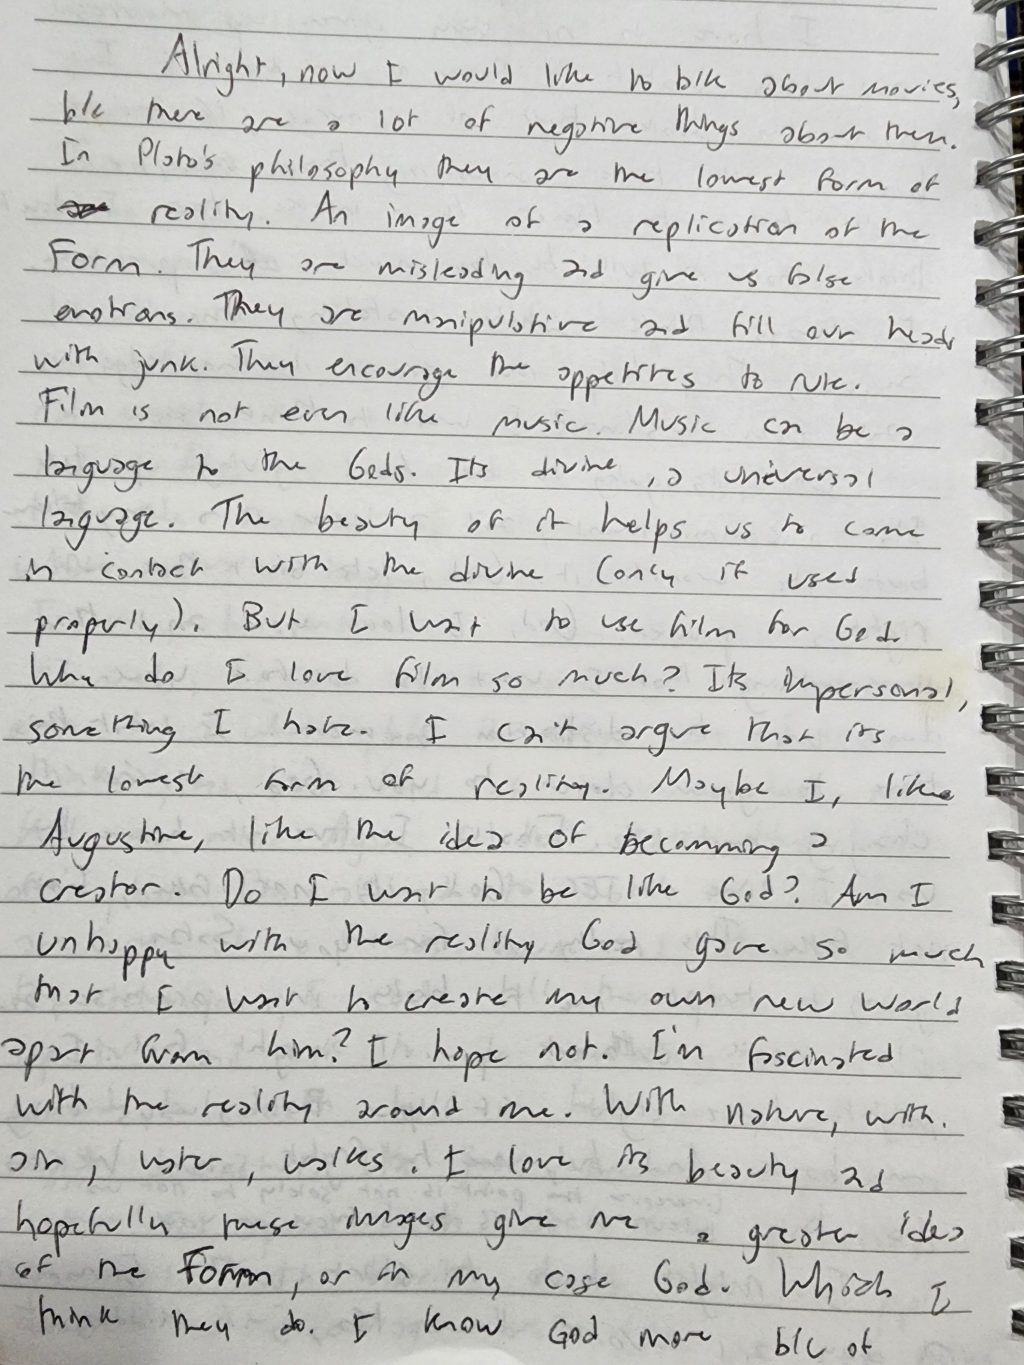 Alright, now I would like to talk about movies,
b/c there are a lot of negative things about them.
In Plato's philosophy they are the lowest form of
reality. An image of a replication of the
Form. They are misleading and give us false
emotions. They are manipulative and fill our heads
with junk. They encourage the appetites to rule.
Film is not even like music. Music can be a
language to the Gods. Its divine, a universal
language. The beauty of it helps us to come
in contact with the divine (only if used
properly). But I want to use film for God.
Why do I love film so much? Its impersonal,
something I hate. I can't argue that its
the lowest form of reality. Maybe I, like
Augustine, like the idea of becomming a
creator. Do I want to be like God? Am I
unhappy with the reality God gave so much
that I want to create my own new world
apart from him? I hope not. I'm fascinated
with the reality around me. With nature, with.
air, water, walks. I love its beauty and
hopefully these images give me a greater idea
of the Form, or in my case God. Which I
think they do. I know God more b/c of